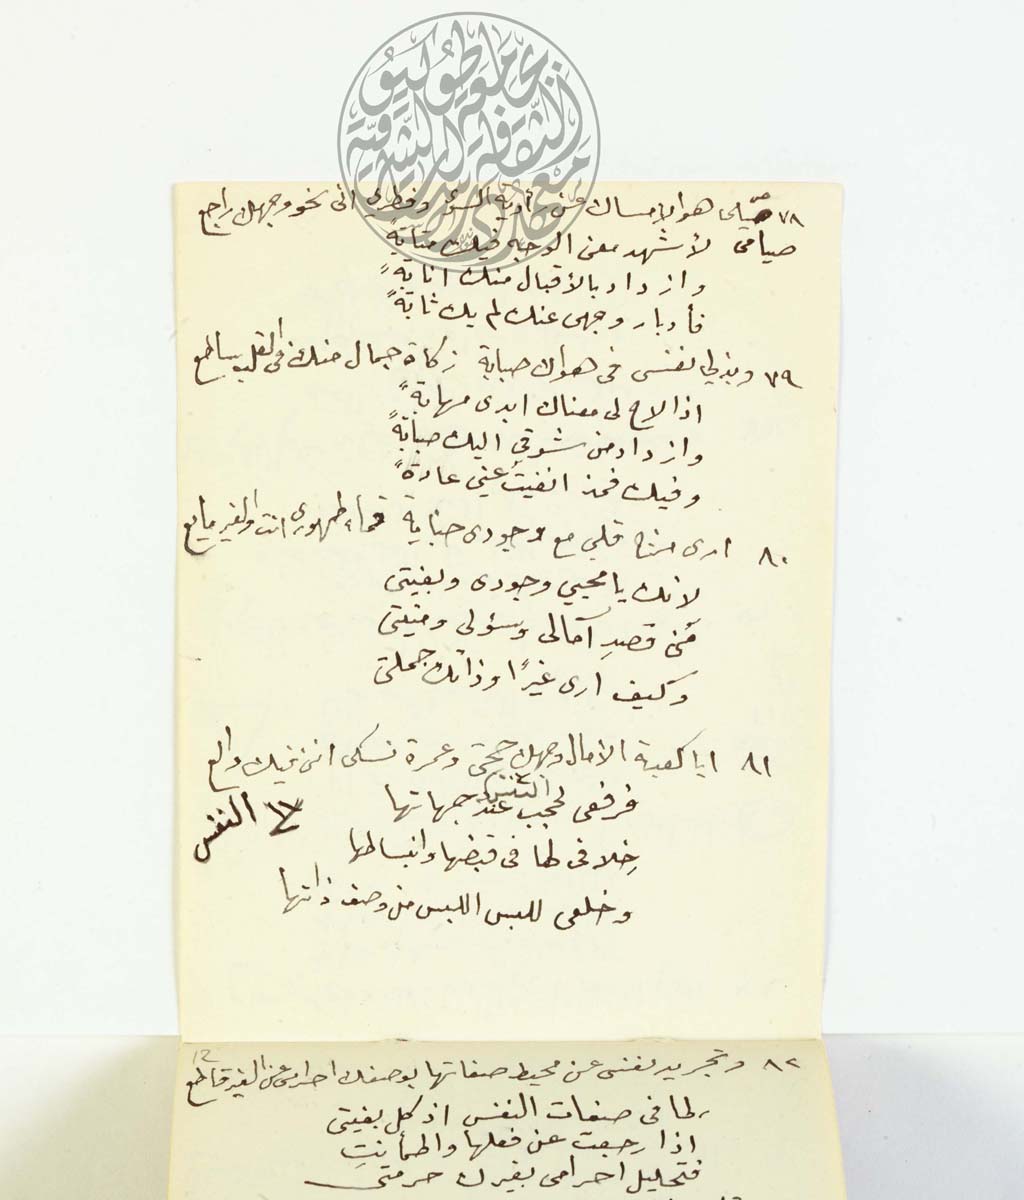 جامعة طوكيو
معهد الثقافة الشرقية
٧٨ صيامي هو الإمساك عن رؤية السوى وفطري انى نحو وجهك راجع
صيامى لأشهد معنى الوجه فيك متابةً
وازداد بالأقبال منك انابةً
فأدبار وجهى عنك لم يك ثابةً
٧٩ وبذلي نفسى فى هواك صبابة زكاة جمال منك فى القلب ساطع
اذا لاح لى معناك ابدى مهابةً
وازداد من شوقي اليك صبابةً
وفيك فمذ انفيتُ عني عادةً
٨٠ ارى مزج قلبي مع وجودى جنابة فماء طهوري انت والغير مايع
لأنك يا محيي وجودى وبغيتى
مُنى قصدِ آمالى وسؤلى ومنيتى
وكيف ارى غيرًا وذاتك جملتى
٨١ ايا كعبة الأمال وجهك حجتى وعمرة نسكى اننى فيك والع
فرفعى لحجب النفس عند جهاتها
النفس
خلافى لها فى قبضها وانبساطها
وخلعى للبس اللبس من وصف ذاتها
12
٨٢ وتجريد نفسى عن محيط صفاتها بوصفك احرامى عن الغير قاطع
لها فى صفات النفس اذ كل بغيتى
اذا رجعت عن فعلها واطمأنتِ
فتحليل احرامى بغيرك حرمتى